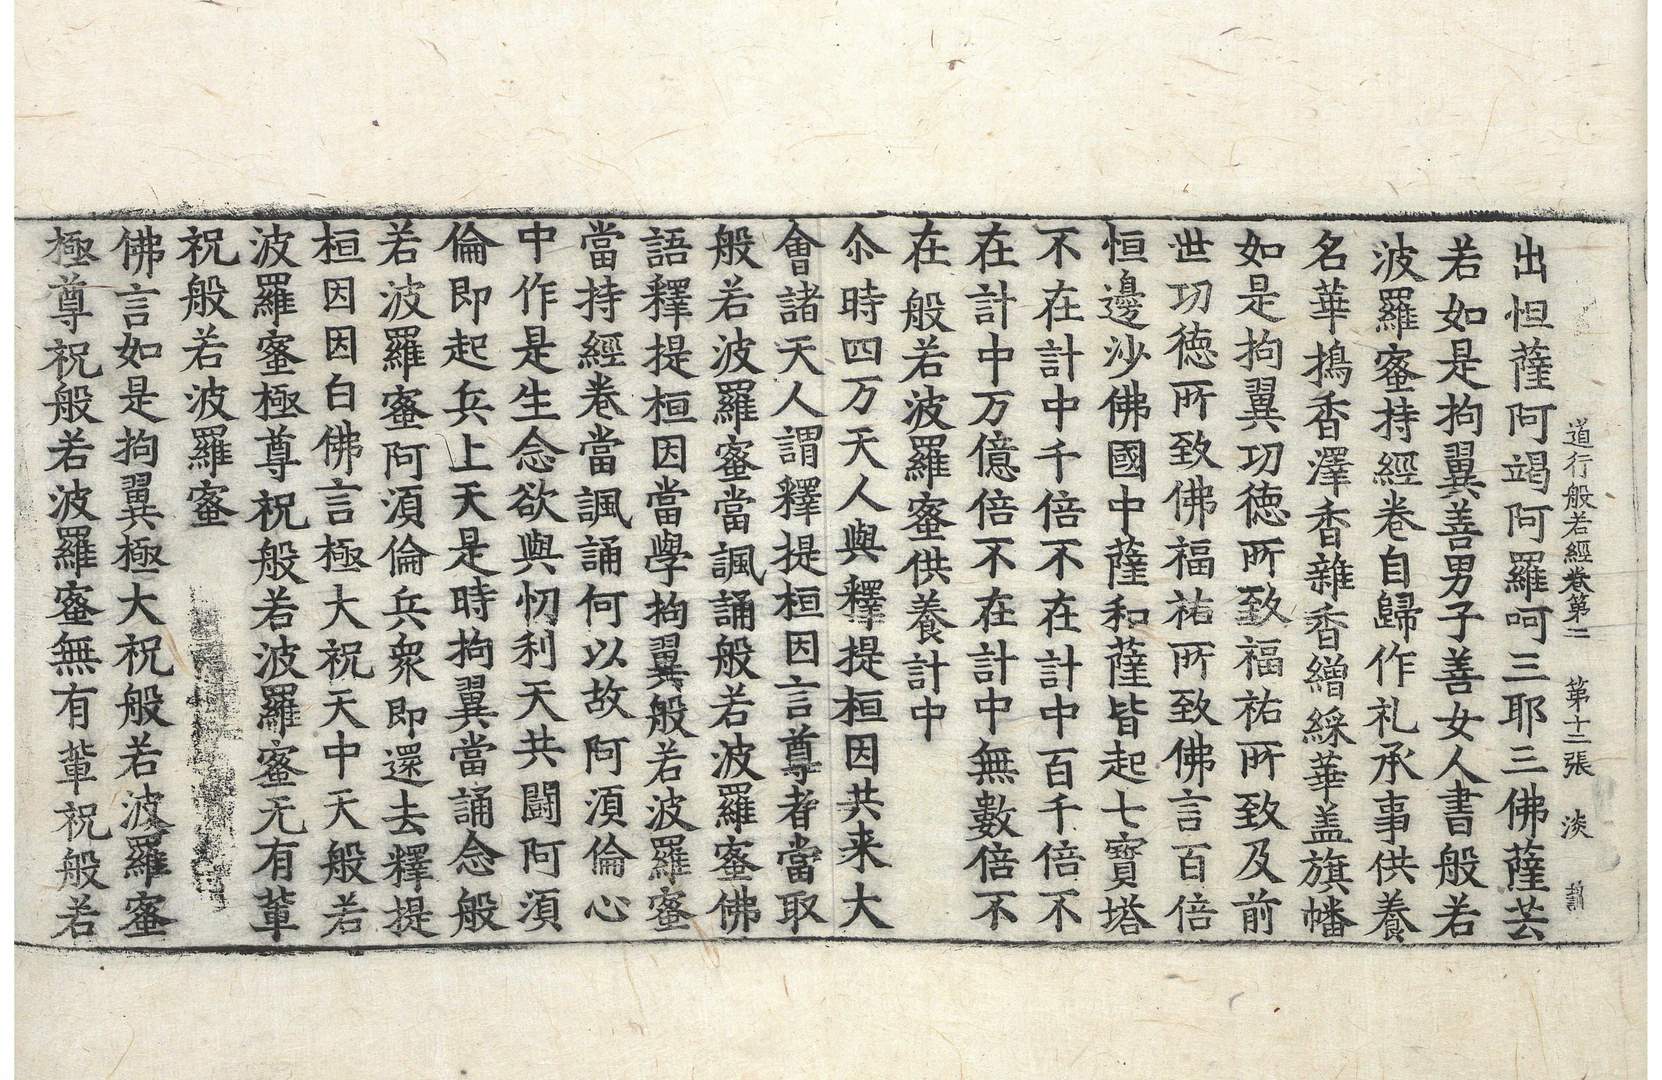 道行般若經卷第二　第十二張　淡
出怛薩阿竭阿羅呵三耶三佛薩芸
若如是拘翼善男子善女人書般若
波羅蜜持經卷自歸作礼承事供養
名華擣香澤香雜香繒綵華盖旗幡
如是拘翼功徳所致福祐所致及前
世功徳所致佛福祐所致佛言百倍
恒邊沙佛國中薩和薩皆起七寶塔
不在計中千倍不在計中百千倍不
在計中万億倍不在計中無數倍不
在般若波羅蜜供養計中
尒時四万天人與釋提桓因共来大
會諸天人謂釋提桓因言尊者當取
般若波羅蜜當諷誦般若波羅蜜佛
語釋提桓因當學拘翼般若波羅蜜
當持經卷當諷誦何以故阿須倫心
中作是生念欲與忉利天共闘阿須
倫即起兵上天是時拘翼當誦念般
若波羅蜜阿須倫兵衆即還去釋提
桓因因白佛言極大祝天中天般若
波羅蜜極尊祝般若波羅蜜无有輩
祝般若波羅蜜
佛言如是拘翼極大祝般若波羅蜜
極尊祝般若波羅蜜無有輩祝般若